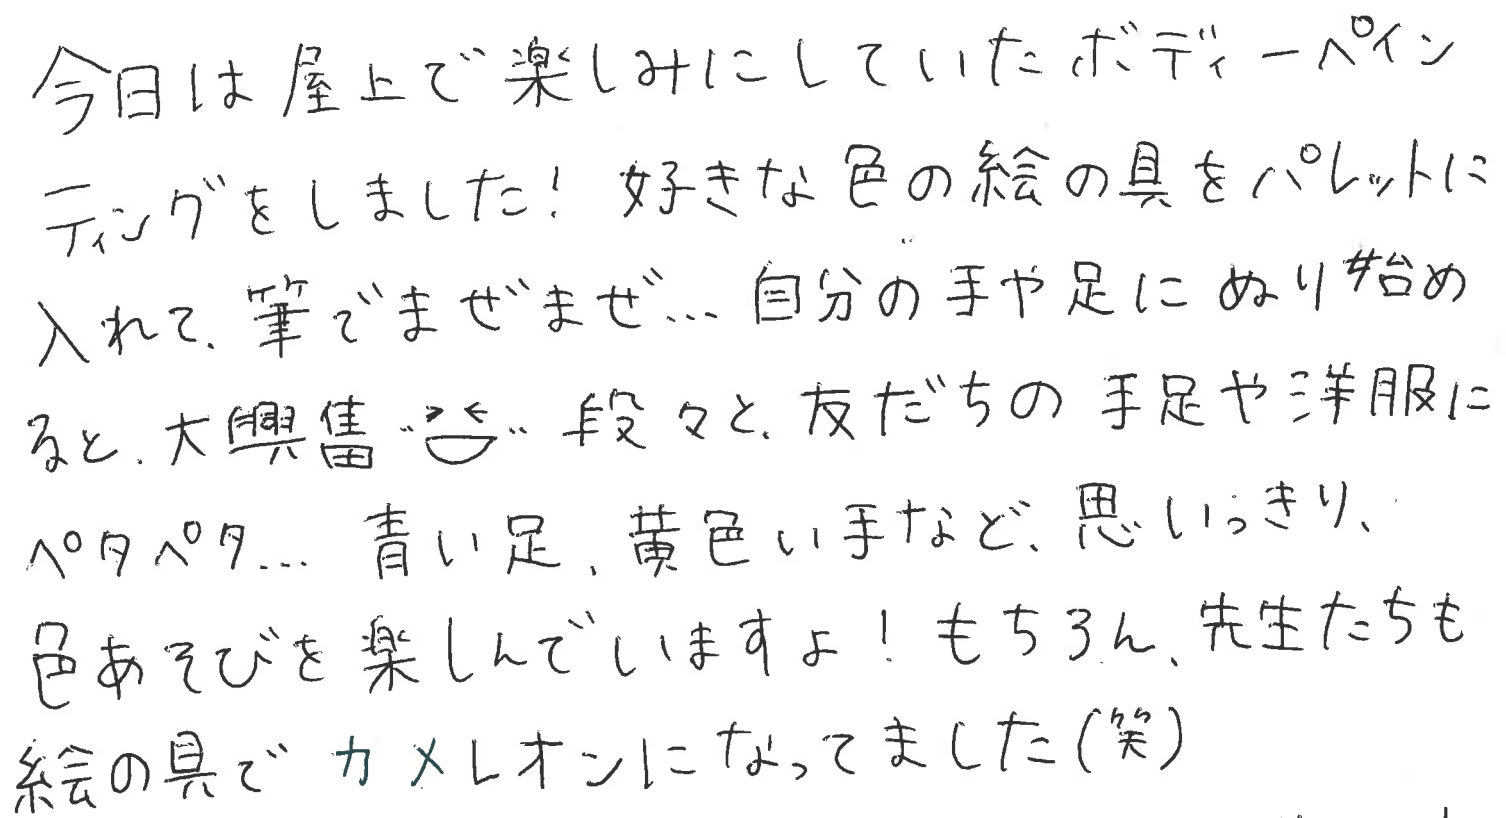 今日は屋上で楽しみにしていたボディーペイン
ティングをしました！好きな色の絵の具をパレットに
入れて、筆でまぜまぜ…自分の手や足にぬり始め
ると、大興奮 段々と、友だちの手足や洋服に
ペタペタ… 青い足、黄色い手など、思いっきり、
色あそびを楽しんでいますよ！もちろん、先生たちも
絵の具でカメレオンになってました(笑)